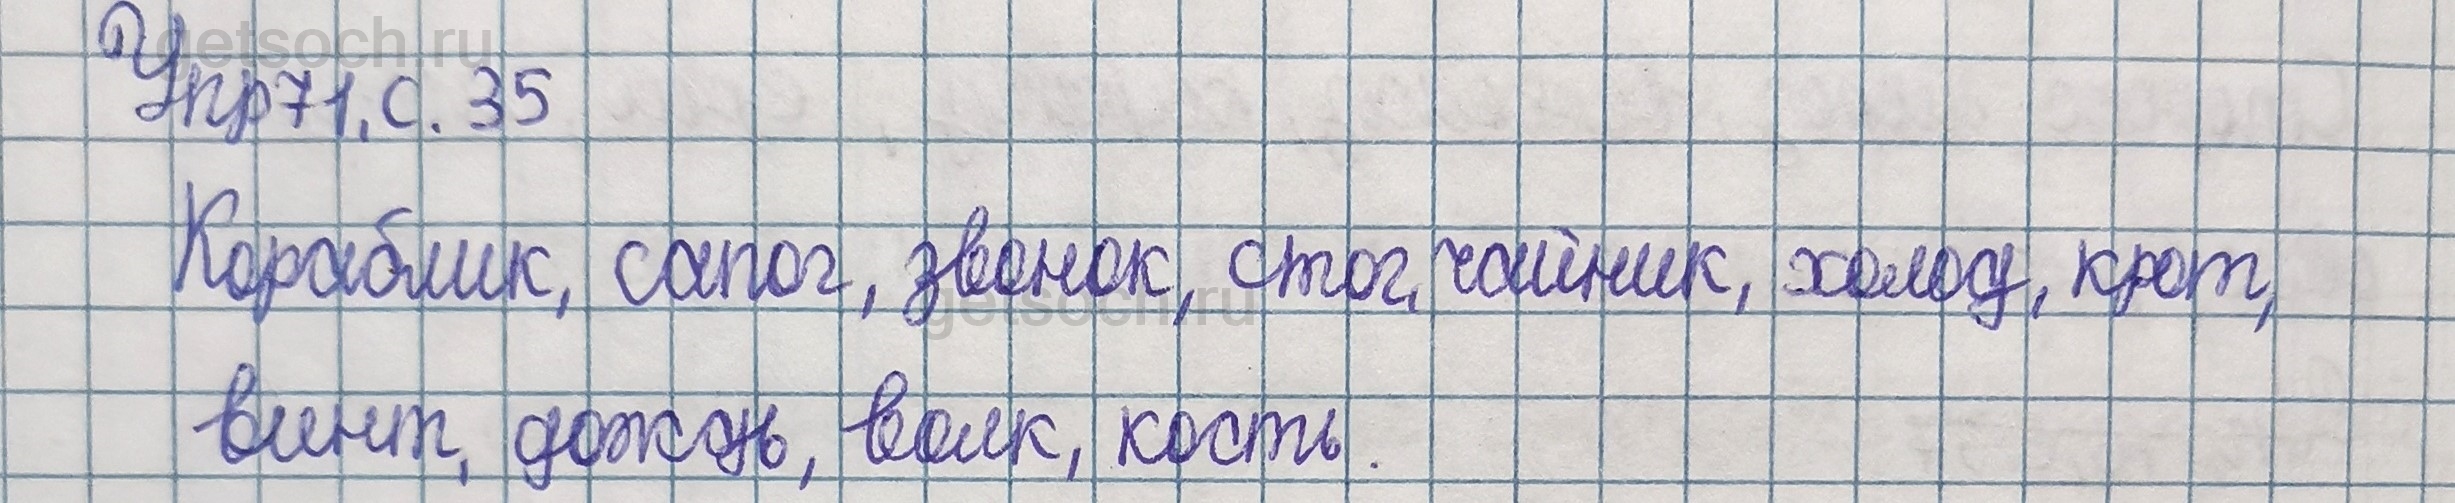 getsoch.ru
Упр71, с. 35
Кораблик, сапог, звонок, стог, чайник, холод, крот,
getsoch.ru
винт, дождь, волк, кость.